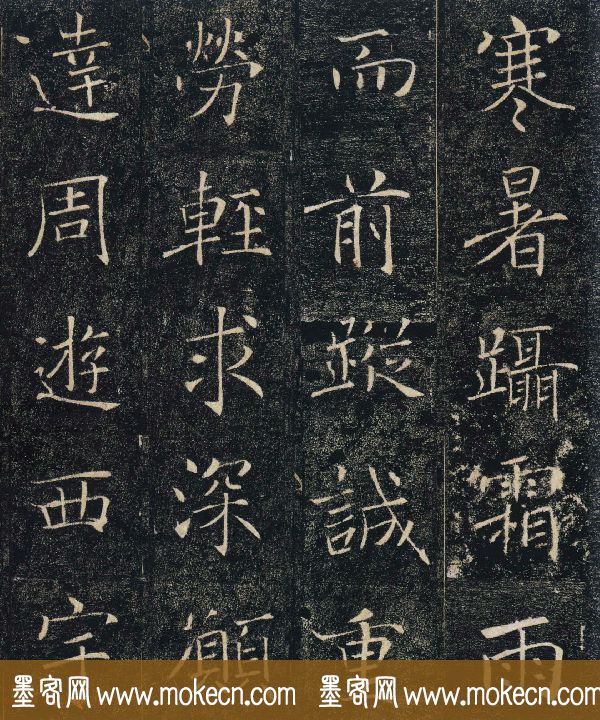 寒暑躡霜雨
而前蹤誠重
勞輕求深願
達周遊西宇
墨客网 www.mokecn.com 墨客网 www.mokecn.com